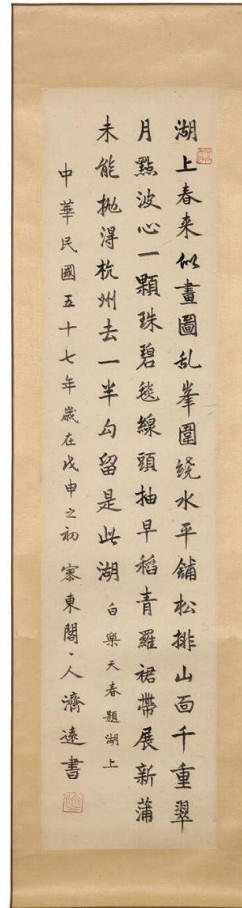 湖上春来似畫圖乱峯圍绕水平鋪松排山面千重翠
月點波心一顆珠碧毯線頭抽早稻青羅裙帶展新蒲
未能抛得杭州去一半勾留是此湖 白樂天春題湖上
中華民國五十七年歲在戊申之初 寒東閣、人濟遠書